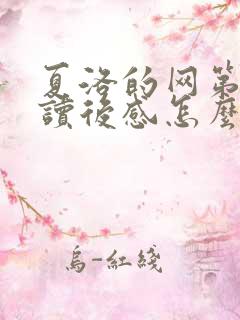 夏洛的网第
讀後感怎麼
烏-紅綫